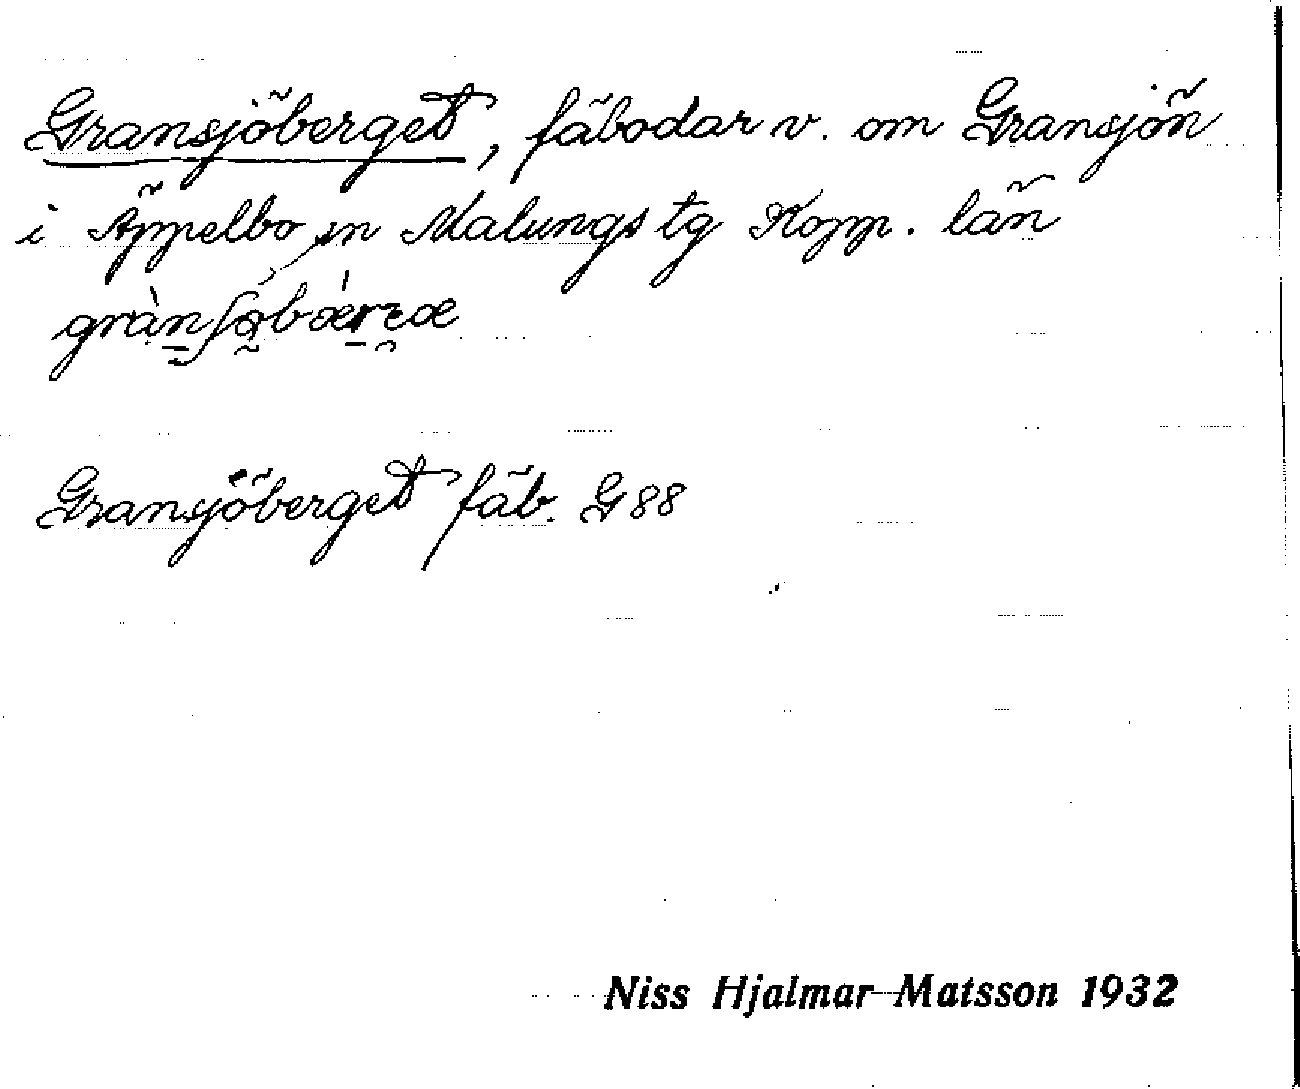 Gransjöberget, fäbodar v. om Gransjön
i Äppelbo sn Malungs tg Kopp. län
Gransjöberget fäb. G 88
Niss Hjalmar Matsson 1932